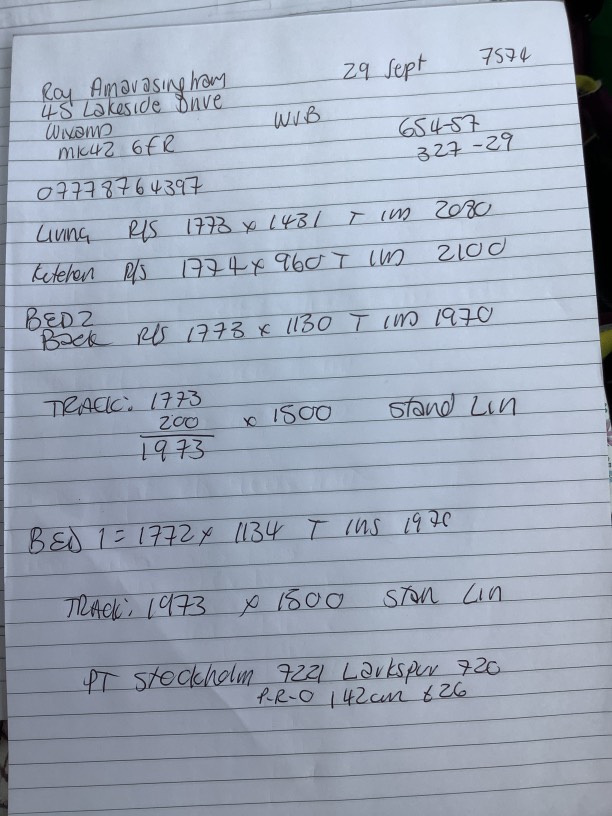 Roy Amarasingham 29 Sept 7574
45 Lakeside Drive
Wixams WVB 654-57
MK42 6FR 327-29
07778764397
Living R/S 1773 x 1431 T IM 2080
Kitchen R/S 1774 x 960 T IM 2100
BED 2
Back R/S 1773 x 1130 T IM 1970
TRACK: 1773
200 x 1500 Stand Lin
1973
BED 1 = 1772 x 1134 T INS 1970
TRACK: 1973 x 1500 Stan Lin
PT Stockholm 7221 Larkspur 720
P-R-O 142cm £26